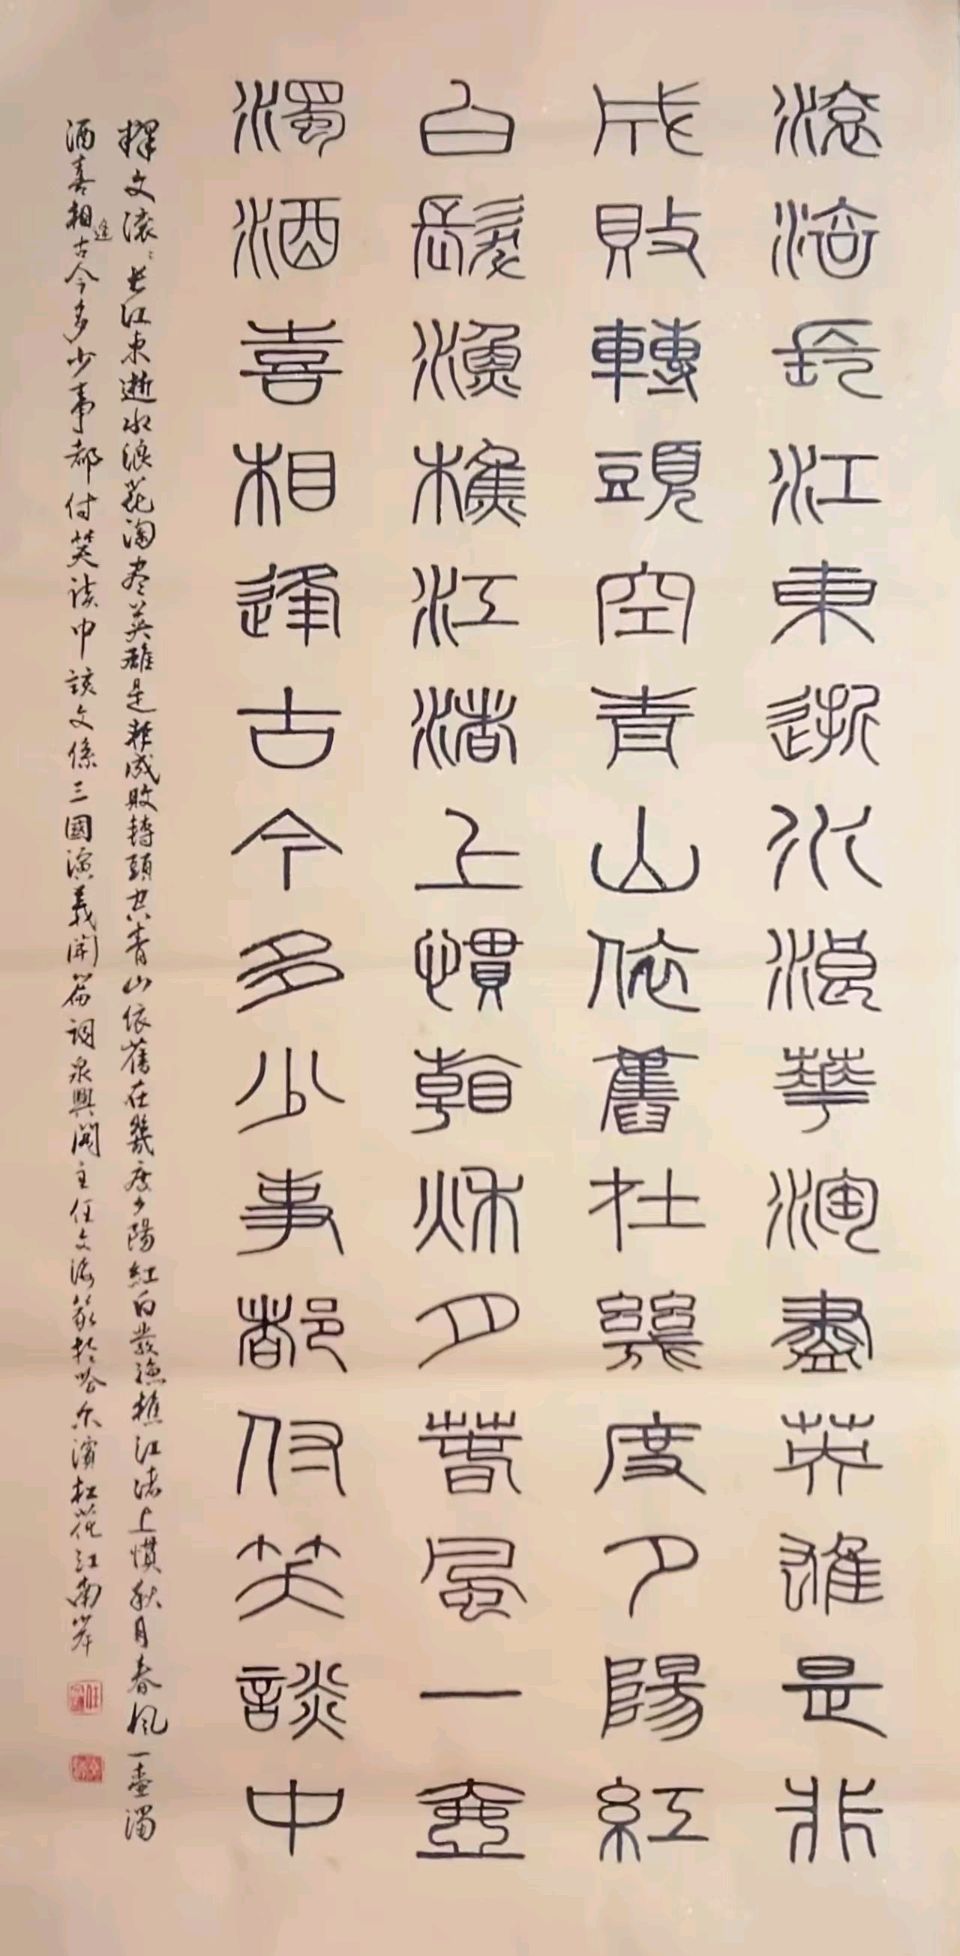 滾滾長江東逝水浪華淘盡英雄是非
成敗轉頭空青山依舊在幾度夕陽紅
白髮漁樵江渚上慣看秋月春風一壺
濁酒喜相逢古今多少事都付笑談中
釋文滚〻長江東逝水浪花淘尽英雄是非成敗轉頭空青山依舊在幾度夕陽紅白發漁樵江渚上慣秋月春風一壺濁
酒喜相逢古今多少事都付笑談中該文係三國演義開篇詞泉興閣主任文海篆於哈尔濱松花江南岸